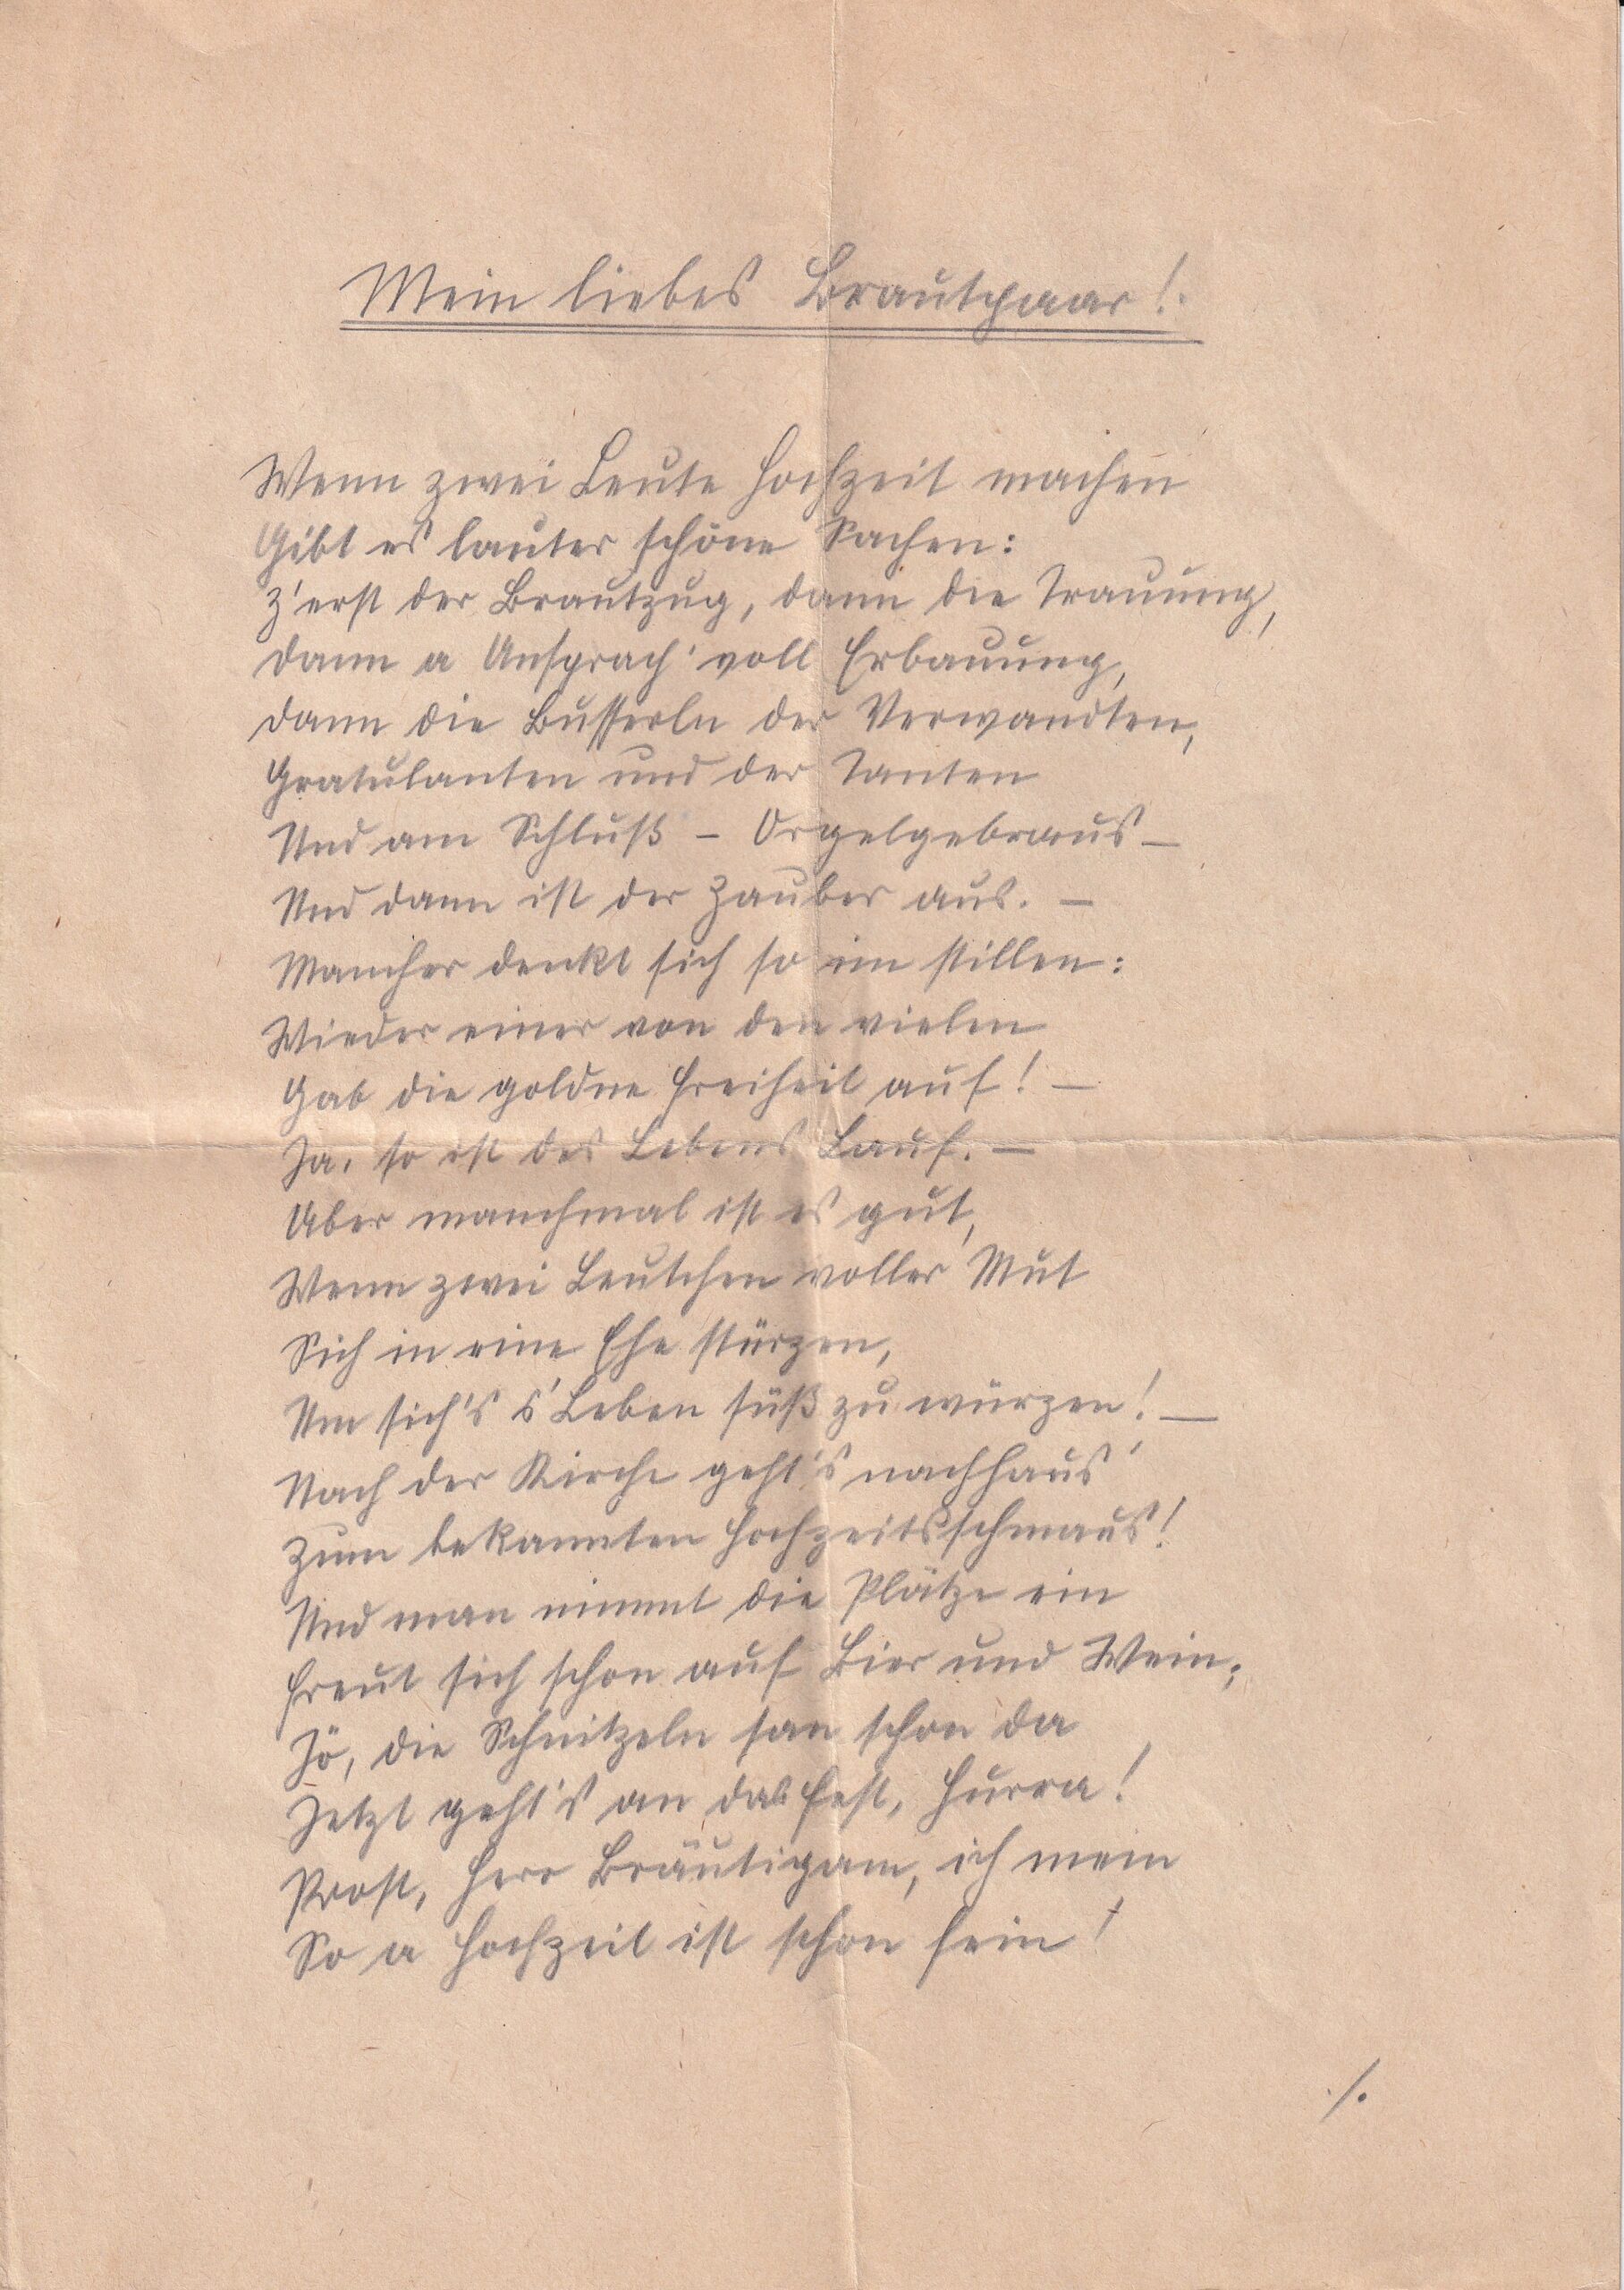 Mein liebes Brautpaar!
Wenn zwei Leute Hochzeit machen
Gibt es lauter schöne Sachen:
Z'erst der Brautzug, dann die Trauung,
Dann a Ansprach' voll Erbauung,
Dann die Busserln der Verwandten,
Gratulanten und der Tanten
Und am Schluß – Orgelgebraus –
Und dann ist der Zauber aus. –
Mancher denkt sich so im stillen:
Wieder einer von den vielen
Gab die goldne Freiheit auf! –
Ja, so ist des Lebens Lauf. –
Aber manchmal ist es gut,
Wenn zwei Leutchen voller Mut
Sich in eine Ehe stürzen,
Um sich's s' Leben süß zu würzen! –
Nach der Kirche geht's nachhaus'
Zum bekannten Hochzeitsschmaus!
Und man nimmt die Plätze ein
Freut sich schon auf Bier und Wein;
Jö, die Schnitzeln san schon da
Jetzt geht's an das Fest, Hurra!
Prost, Herr Bräutigam, ich mein
So a Hochzeit ist schon fein!
./.